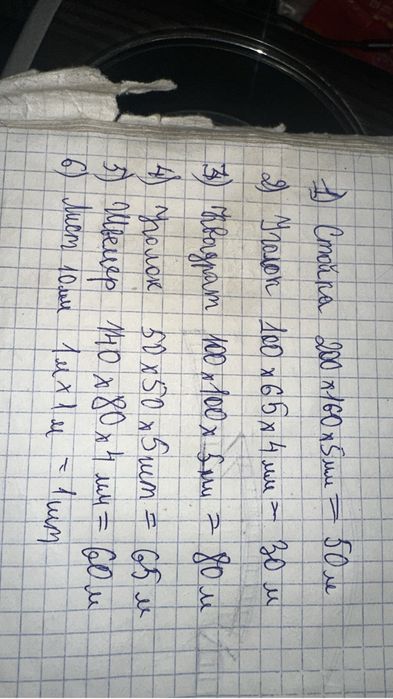 1) Стойка 200х160х5мм = 50м
2) Уголок 100х65х4мм = 30м
3) Квадрат 100х100х5мм = 80м
4) Уголок 50х50х5шт = 65м
5) Швелер 140х80х4мм = 60м
6) Лист 10мм 1мх1м = 1шт